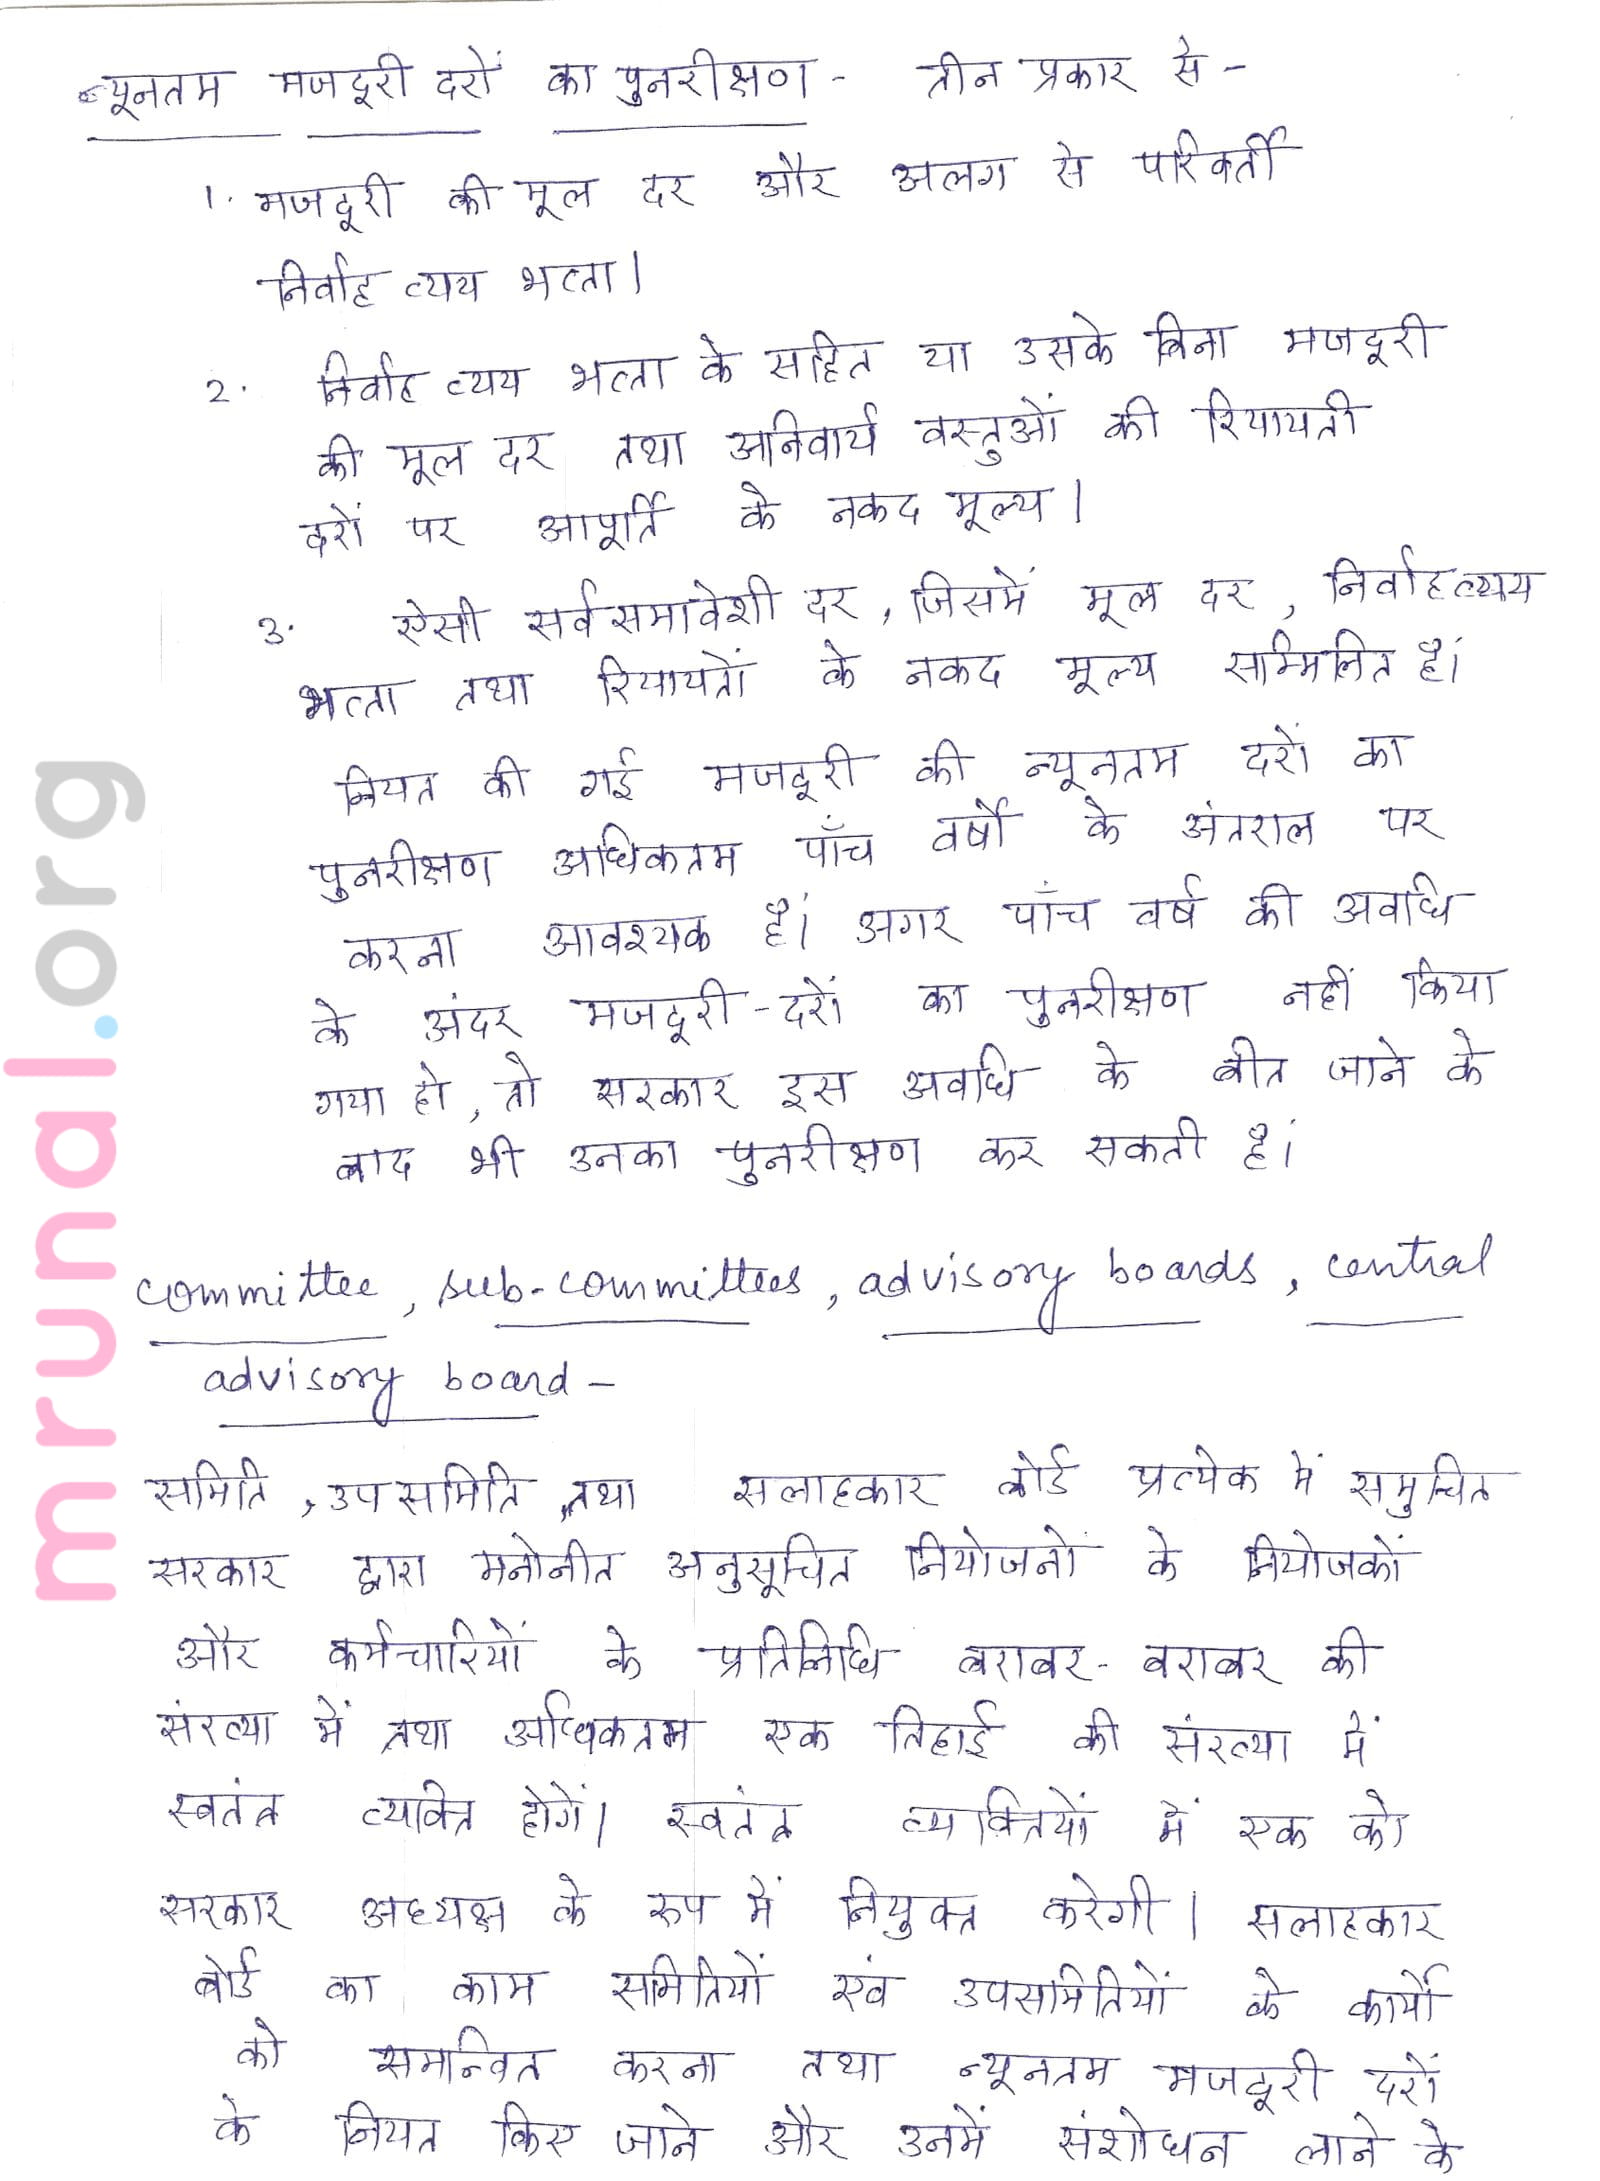 न्यूनतम मजदूरी दरों का पुनरीक्षण - तीन प्रकार से -
1. मजदूरी की मूल दर और अलग से परिवर्ती
निर्वाह व्यय भत्ता।
2. निर्वाह व्यय भत्ता के सहित या उसके बिना मजदूरी
की मूल दर तथा अनिवार्य वस्तुओं की रियायती
दरों पर आपूर्ति के नकद मूल्य।
3. ऐसी सर्वसमावेशी दर, जिसमें मूल दर, निर्वाह व्यय
भत्ता तथा रियायतों के नकद मूल्य सम्मिलित है।
नियत की गई मजदूरी की न्यूनतम दरों का
पुनरीक्षण अधिकतम पाँच वर्षों के अंतराल पर
करना आवश्यक है। अगर पाँच वर्ष की अवधि
के अंदर मजदूरी-दरों का पुनरीक्षण नहीं किया
गया हो, तो सरकार इस अवधि के बीत जाने के
बाद भी उनका पुनरीक्षण कर सकती है।
committee, sub-committees, advisory boards, central
advisory board -
समिति, उपसमिति, तथा सलाहकार बोर्ड प्रत्येक में समुचित
सरकार द्वारा मनोनीत अनुसूचित नियोजनों के नियोजकों
और कर्मचारियों के प्रतिनिधि बराबर-बराबर की
संख्या में तथा अधिकतम एक तिहाई की संख्या में
स्वतंत्र व्यक्ति होगें। स्वतंत्र व्यक्तियों में एक को
सरकार अध्यक्ष के रुप में नियुक्त करेगी। सलाहकार
बोर्ड का काम समितियों एंव उपसमितियों के कार्यों
को समन्वित करना तथा न्यूनतम मजदूरी दरों
के नियत किए जाने और उनमें संशोधन लाने के
mrunal.org